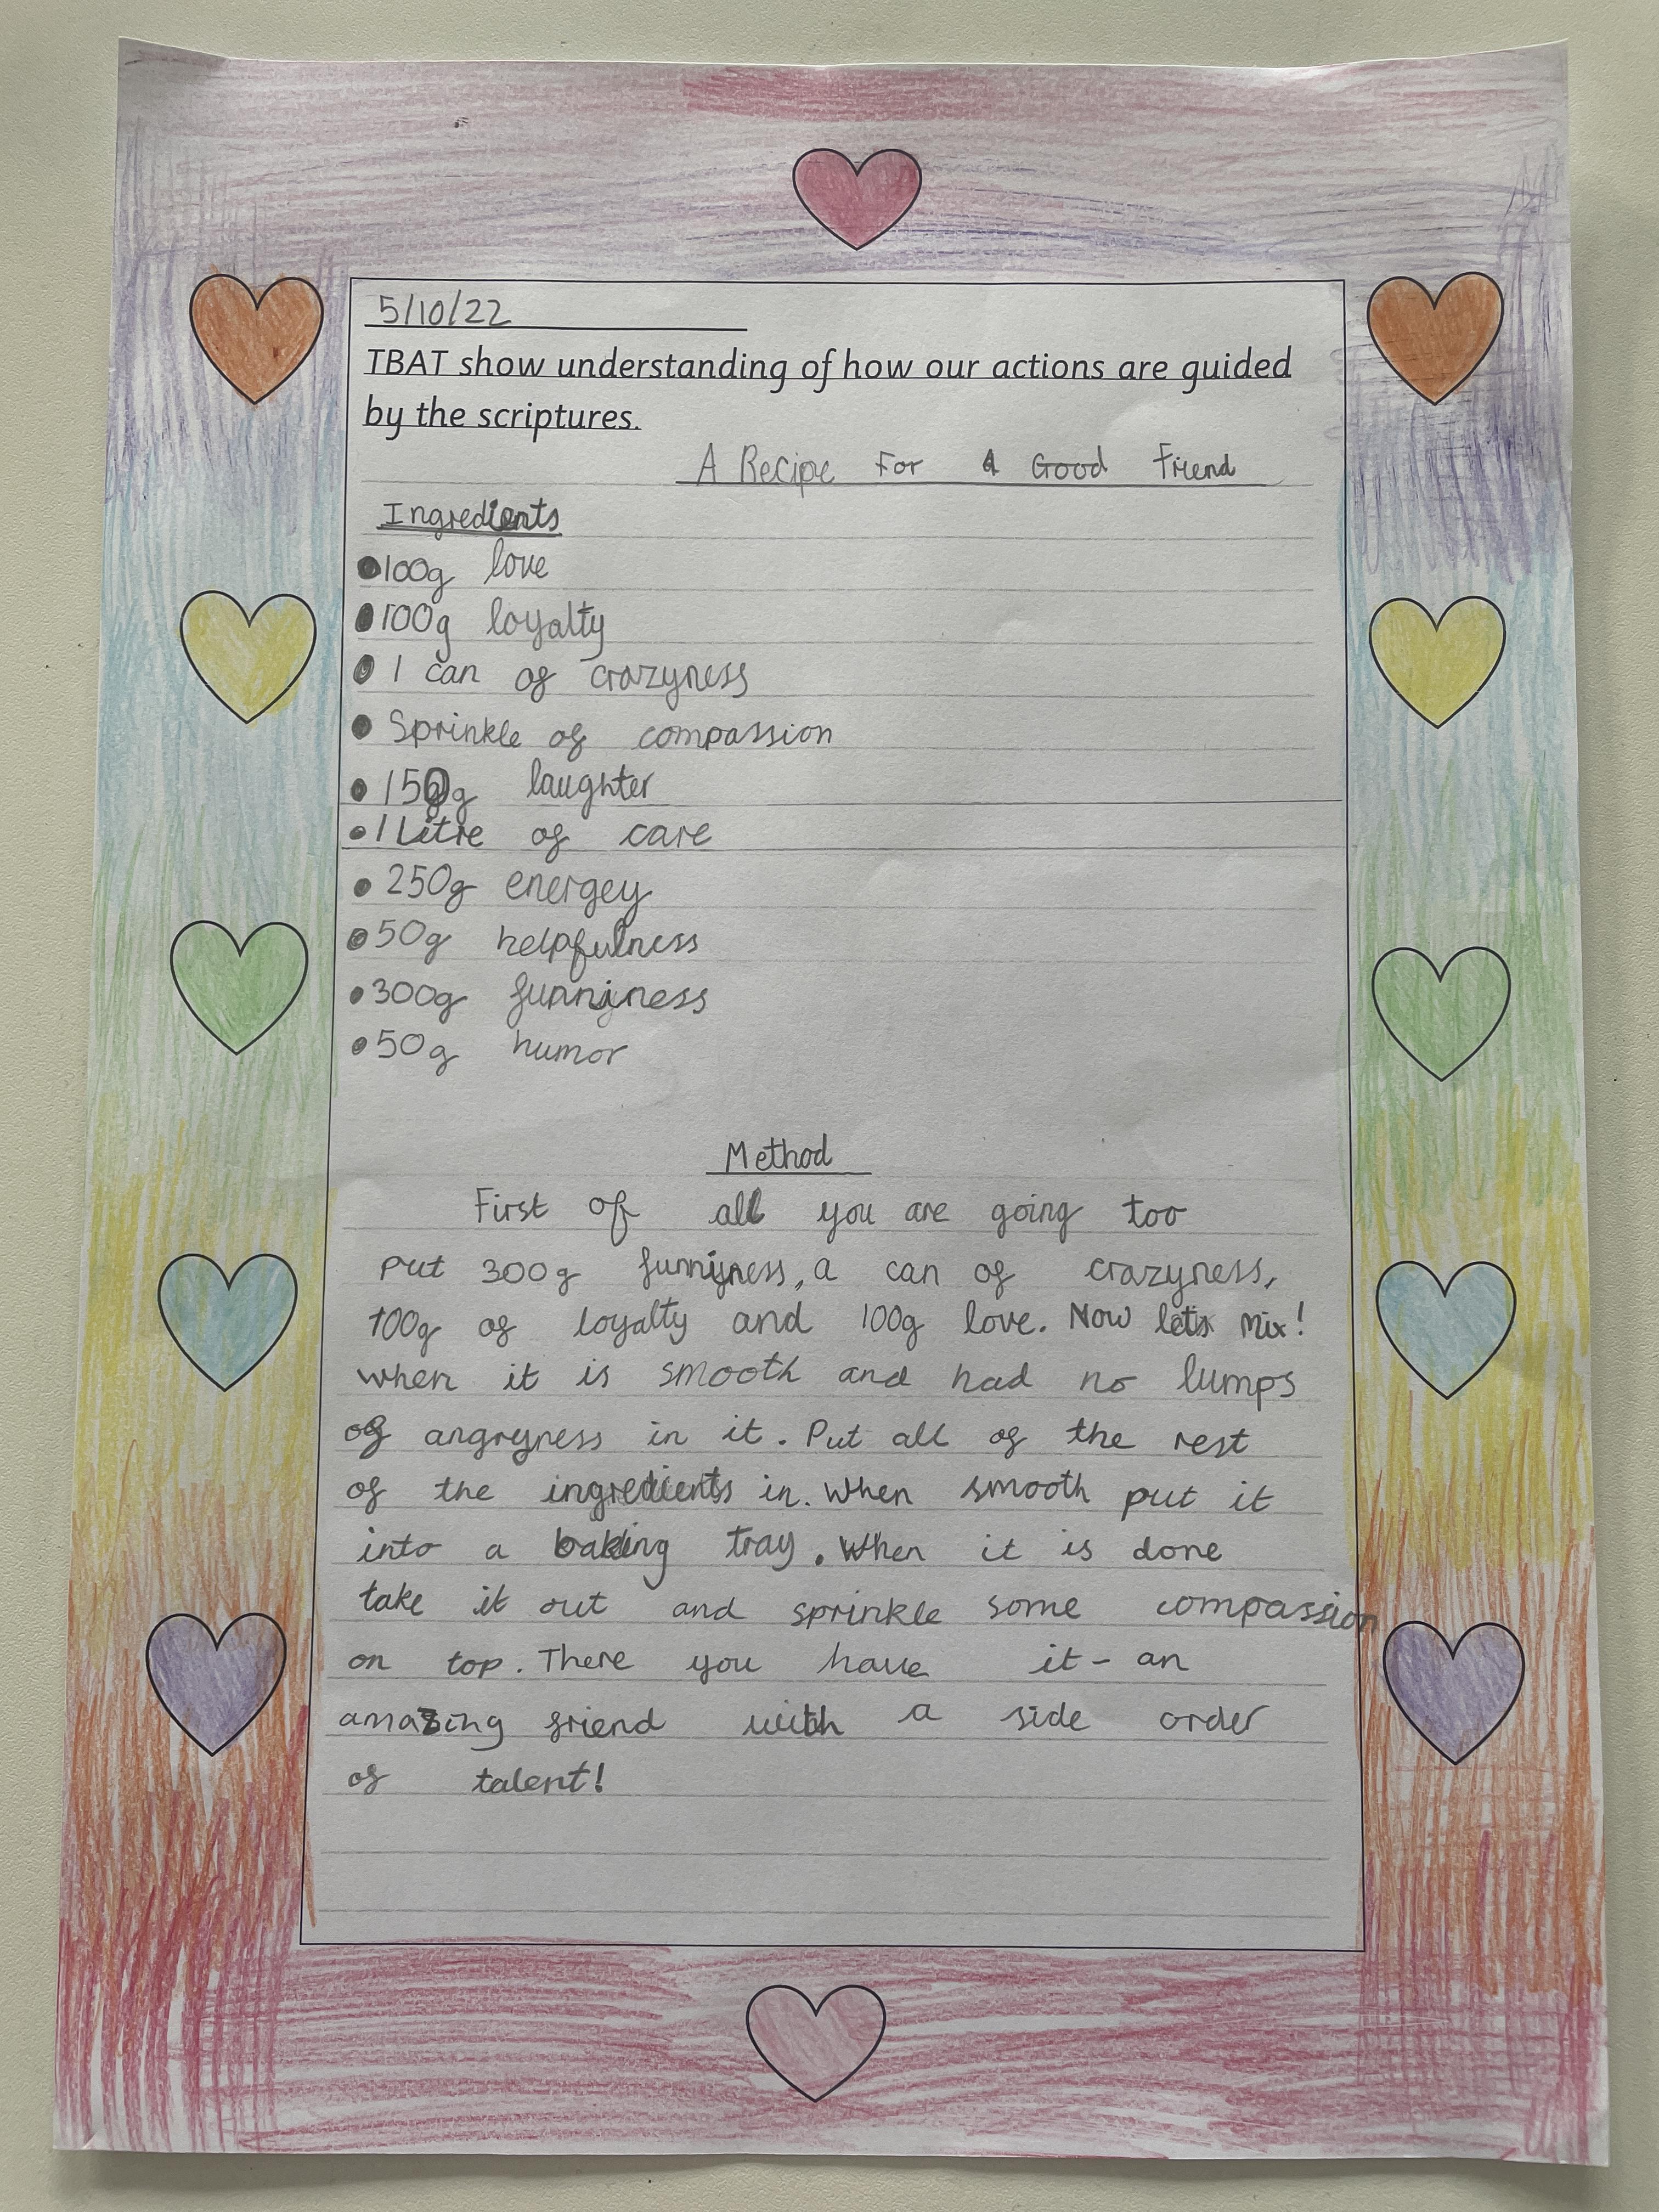 5/10/22
TBAT show understanding of how our actions are guided
by the scriptures.
A Recipe For A Good Friend
Ingredients
• 100g love
• 100g loyalty
• 1 can of crazyness
• Sprinkle of compassion
• 150g laughter
• 1 Litre of care
• 250g energey
• 50g helpfulness
• 300g funniness
• 50g humor
Method
First of all you are going too
put 300g funniyness, a can of crazyness,
100g of loyalty and 100g love. Now lets mix!
when it is smooth and had no lumps
of angryness in it. Put all of the rest
of the ingredients in. When smooth put it
into a baking tray. When it is done
take it out and sprinkle some compassion
on top. There you have it - an
amazing friend with a side order
of talent!